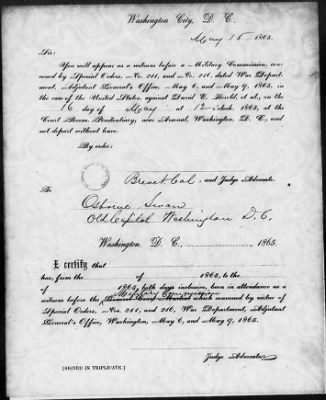 Washington City, D. C.
May 15 1865.
Sir:
You will appear as a witness before a Military Commission, con-
vened by Special Orders, Nos. 211, and No. 216, dated War Depart-
ment, Adjutant General's Office, May 6, and May 9, 1865, in
the case of the United States, against David E. Herold, et al., on the
16 day of May at 12 o'clock, 1865, at the
Court Room, Penitentiary, near Arsenal, Washington, D. C., and
not depart without leave.
By order:
Brevet Col, and Judge Advocate.
To
Osborne Swan
Old Capitol Washington D. C.
Washington, D. C. 1865.
I certify that
has, from the of 1865, to the
of 1865, both days inclusive, been in attendance as a
Military Commission
witness before the General Court Martial which convened by virtue of
Special Orders, Nos. 211, and 216, War Department, Adjutant
General's Office, Washington, May 6, and May 9, 1865.
Judge Advocate
[SIGNED IN TRIPLICATE.]